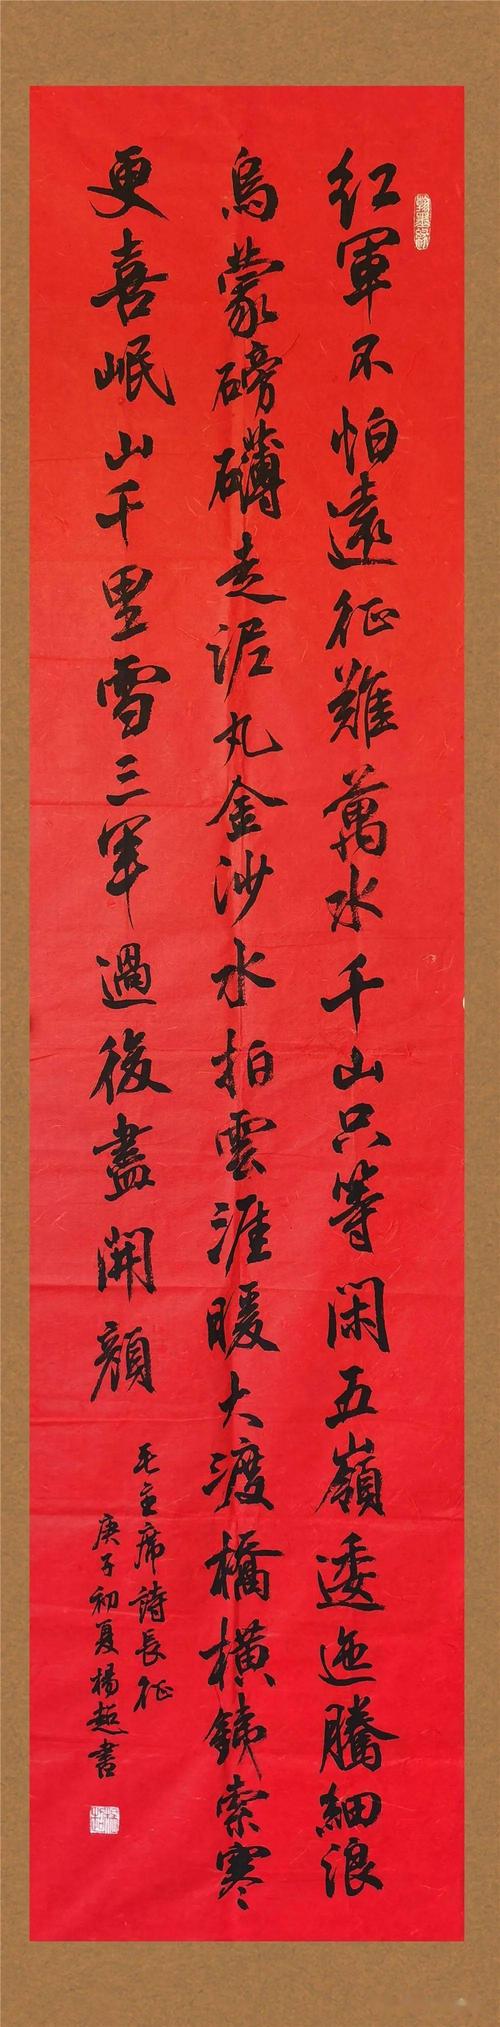 红軍不怕遠征難萬水千山只等閑五嶺逶迤騰細浪
烏蒙磅礴走泥丸金沙水拍雲涯暖大渡橋橫銕索寒
更喜岷山千里雪三軍過後盡開顏
毛主席詩長征
庚子初夏楊超書